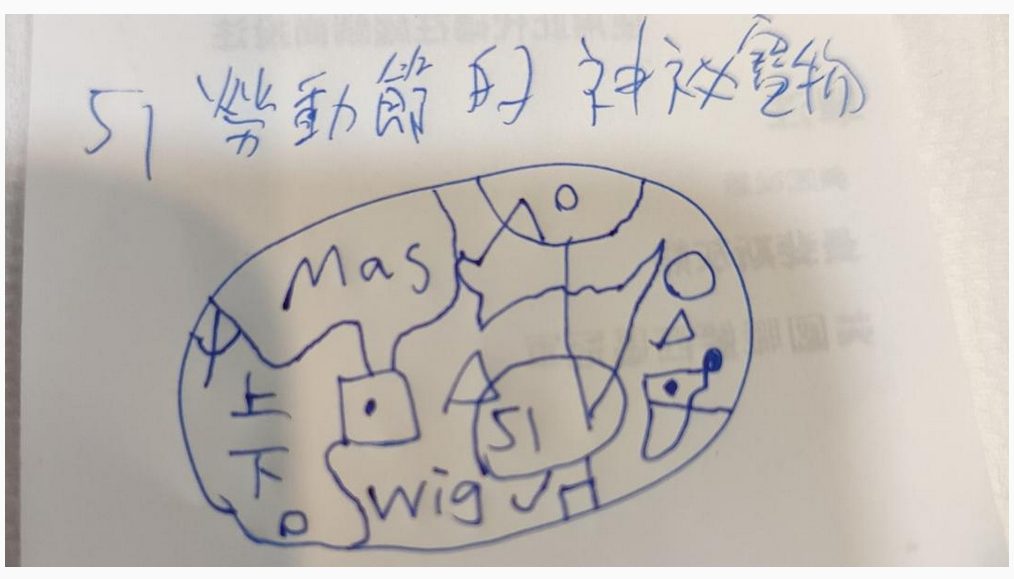 51 勞動節的神祕寶物
Mas
上
下
51
wig